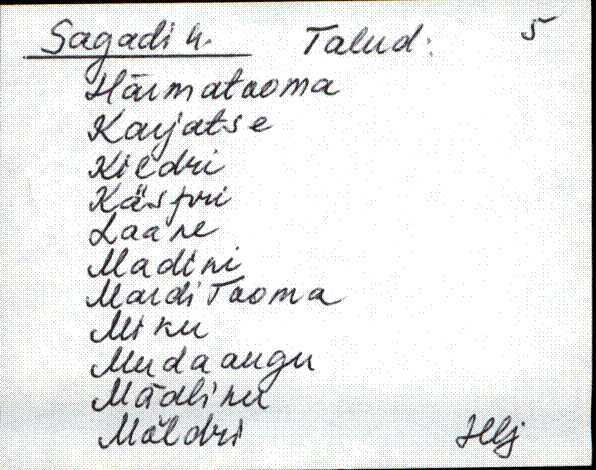 Sagadi k. Talud: 5
Härmatooma
Karjatse
Kildri
Käspri
Laane
Madini
Mardi Tooma
Miku
Mudaaugu
Mädliku
Möldri